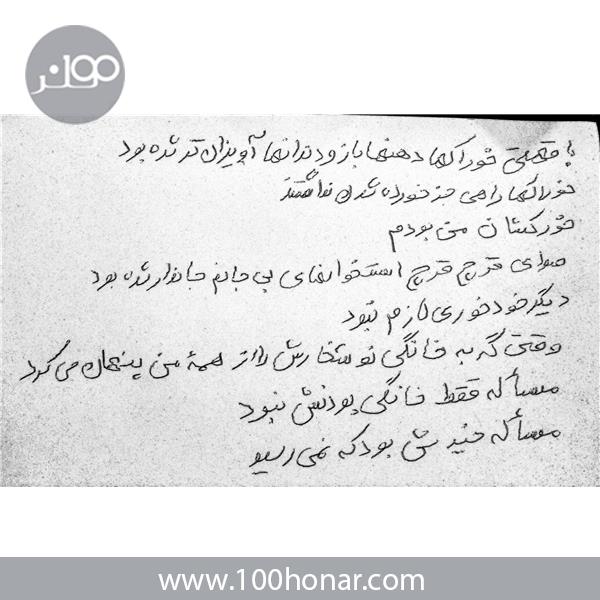 با قحطی خوراکها دهنها باز و دندانها آویزان تر شده بود
خوراکها راهی جز خورده شدن نداشتند
خورکشان من بودم
صدای قرچ قرچ استخوانهای بی جانم جاندار شده بود
دیگر خودخوری لازم نبود
وقتی گربه خانگی نوشخارش را از همهٔ من پنهان می کرد
مسأله فقط خانگی بودنش نبود
مسأله ش بود که نمی رسید
www.100honar.com